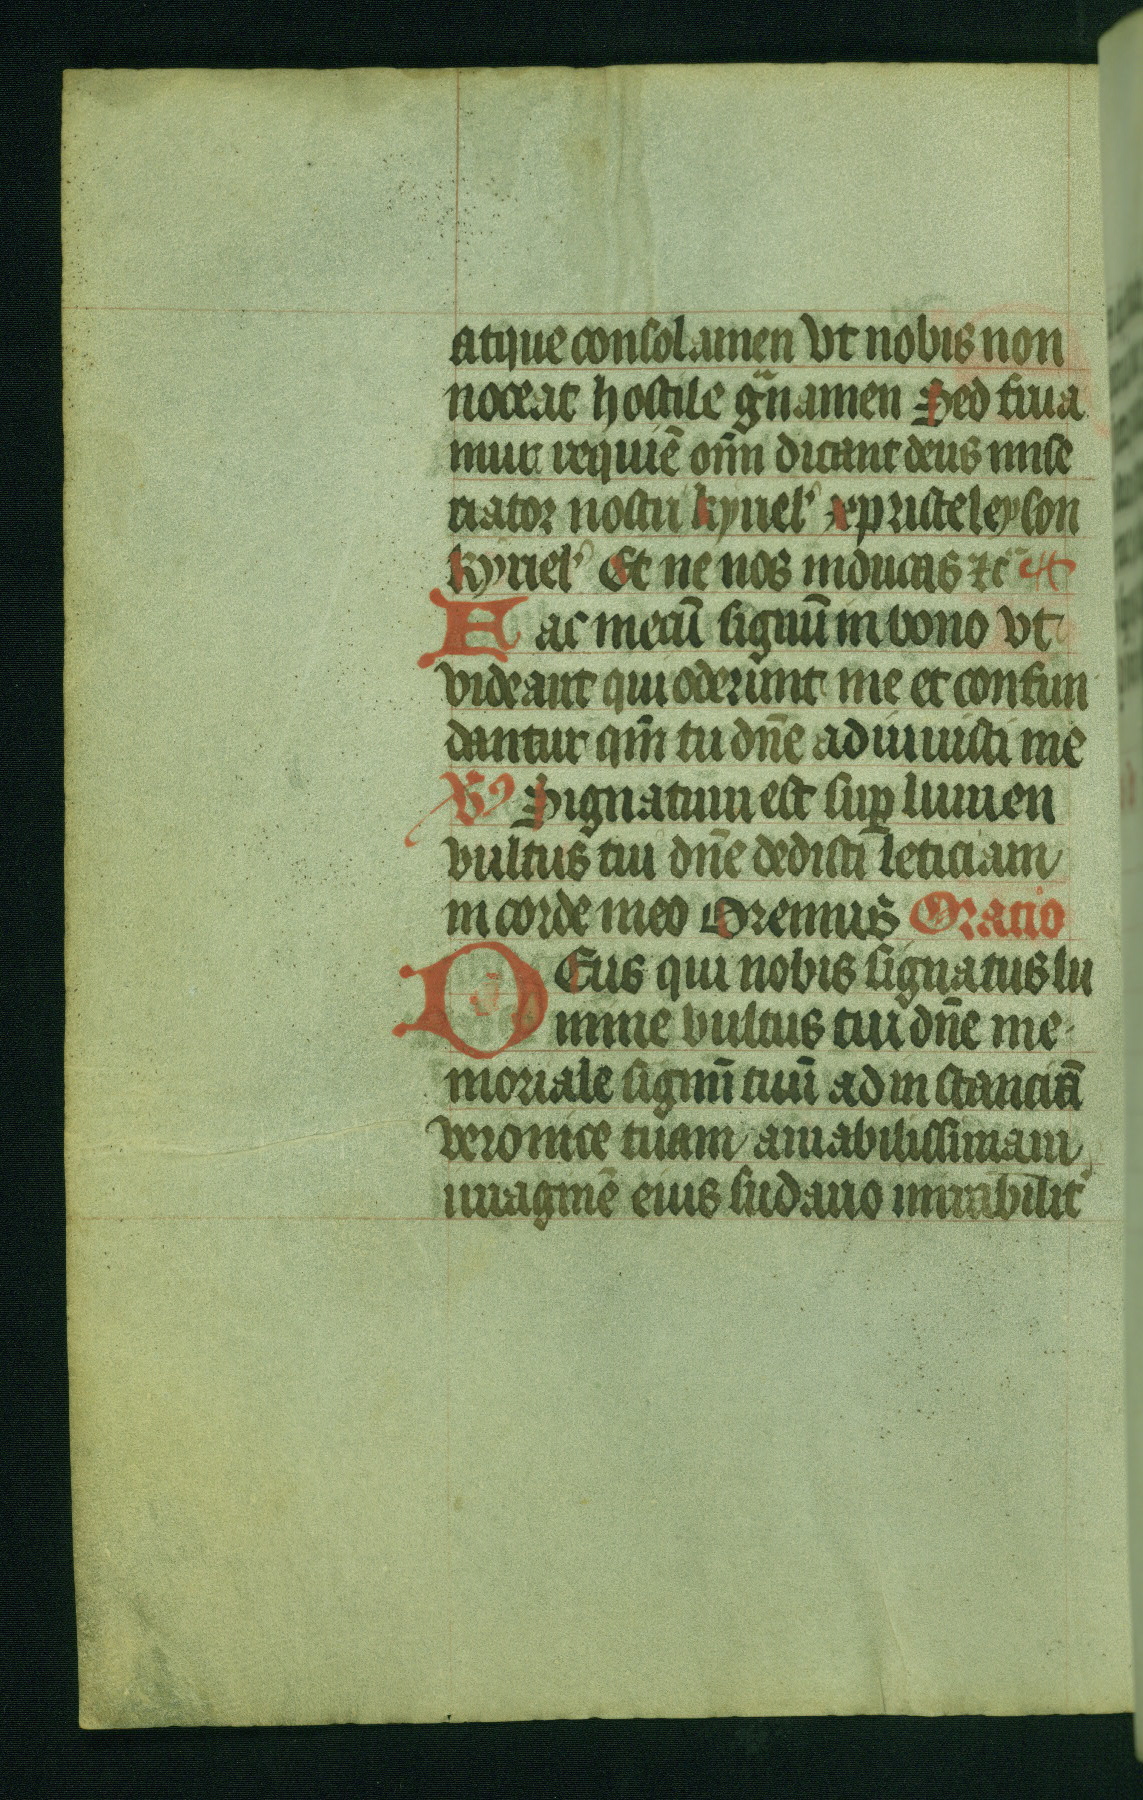 atque consolamen Vt nobis non
noceat hostile gᵃuamen Sed frua
mur requiē oīm dicant deus mise
riator nostri kyriel' xpristeleyson
kyriel' Et ne nos inducas ⁊c̄
Fac mecū signū in bono vt
videant qui oderunt me et confun
dantur qm̄ tu dn̄e adiuuisti me
Signatum est suꝑ lumen
vultus tui dn̄e dedisti leticiam
in corde meo Oremus Oratio
DEus qui nobis signatus lu
mine vultus tui dn̄e me
moriale signū tuū ad instanciā
veronice tuam amabilissimam
imaginē eius sudario mirabilit'